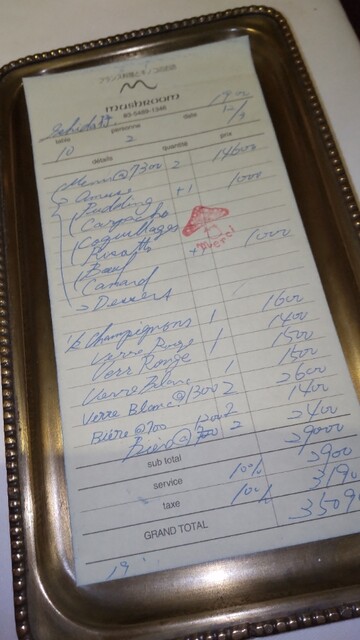 moosushumu
03-5489-1346
19:00
table personne date 12/9
10 2
détails quantité prix
Menu @7300 2 14600
Amuse
Pudding +1 1000
Carpaccio
Coquillages
Risotto +1 1000
Boeuf
Canard
→ Dessert
Merci
Champignons 1 1600
Verre Rouge 1 1400
Verr Rouge 1500
Verre Blanc 1 1500
Verre Blanc @1300 2 2600
Bière @700 2 1400
Bière @1200 2 2400
sub total 29000
service 10% 2900
taxe 10% 3190
GRAND TOTAL 3509